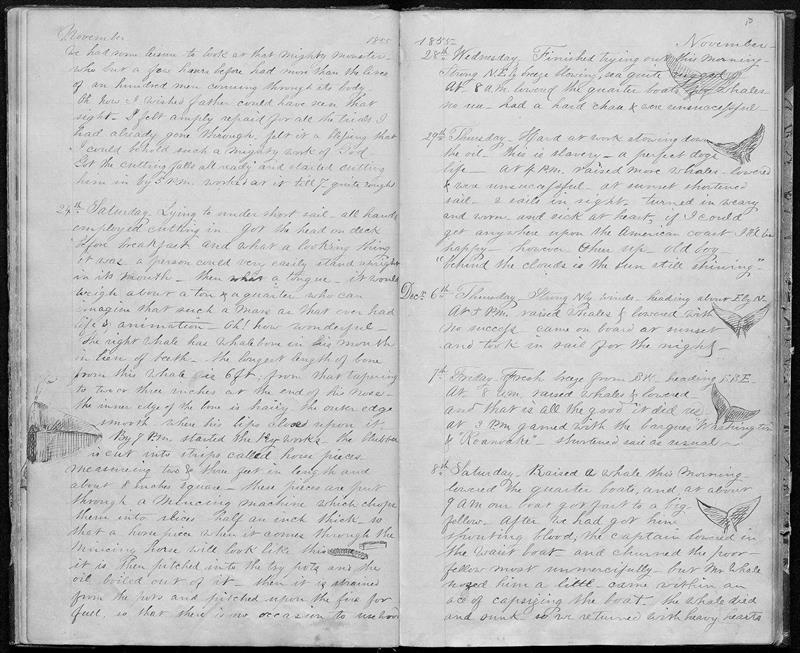 November 1855
We had some leisure to look at that mighty monster
who but a few hours before had more than the lives
of an hundred men coursing through its body
Oh how I wished father could have seen that
sight - I felt amply repaid for all the trials I
had already gone through, felt it a blessing that
I could behold such a mighty work of God
Got the cutting falls all ready and started cutting
him in by 3 P.M. worked at it till 7 quite rough
24th Saturday. Lying to under short sail all hands
employed cutting in. Got the head on deck
before breakfast and what a looking thing
it was a person could very easily stand upright
in its mouth - then what a tongue - it would
weigh about a ton & a quarter who can
imagine that such a mass as that ever had
life & animation - Oh! how wonderful -
The right whale has whalebone in his mouth
in lieu of teeth - the longest length of bone
from this whale is 6ft, from that tapering
to two or three inches at the end of his nose
the inner edge of the bone is hairy the outer edge
smooth when his lips close upon it
By 7 P.M. started the Try works - the blubber
is cut into strips called horse pieces
measuring two & three feet in length and
about 8 inches square these pieces are put
through a Mincing machine which chops
them into slices half an inch thick so
that a horse piece when it comes through the
Mincing horse will look like this
it is then pitched into the try pots and the
oil boiled out of it - then it is strained
from the pots and pitched upon the fire for
fuel, so that there is no occasion to use wood
1855 November
28th Wednesday Finished trying out this morning
Strong N.E.ly breeze blowing, sea quite rugged
At 8 a.m. lowered the quarter boats for whales
no sea - had a hard chase & were unsuccessful -
29th Thursday - Hard at work stowing down
the oil - this is slavery - a perfect dogs
life - At 4 P.M. raised more whales - lowered
& were unsuccessful - at sunset shortened
sail - 2 sails in sight - turned in weary
and worn and sick at heart, if I could
get anywhere upon the American coast I'd be
happy - however cheer up old boy -
"behind the clouds is the sun still shining" -
Decr 6th Thursday - Strong Nly winds - heading about E by N -
At 1 P.M. raised whales & lowered with
no success came on board at sunset
and took in sail for the night -
7th Friday - Fresh breeze from heading
At 8 a.m. raised whales & lowered
and that is all the good it did us
at 3 P.M. gamed with the barques Washington
& "Roanoake" - shortened sail as usual -
8th Saturday - Raised a whale this morning -
lowered the quarter boats, and at about
9 am our boat got fast to a big
fellow - After we had got him
spouting blood, the captain lowered in
the waist boat and churned the poor
fellow most unmercifully - but Mr Whale
him a little - came within an
ace of capsizing the boat - the whale died
and sunk so we returned with heavy hearts